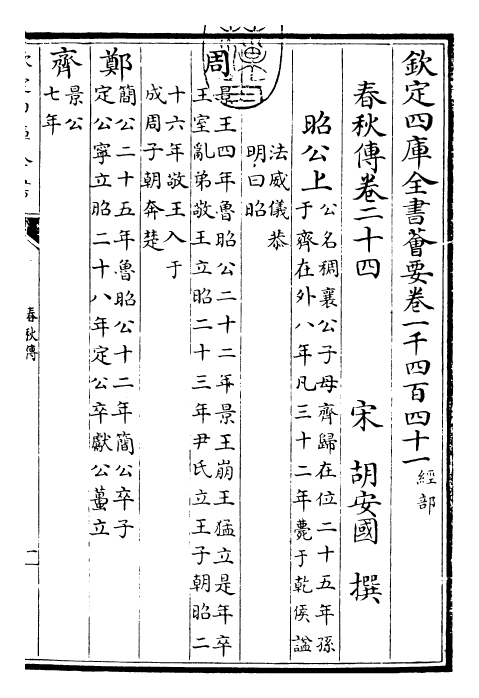 欽定四庫全書薈要卷一千四百四十一 經部
春秋傳卷二十四
宋 胡安國 撰
昭公上 公名稠襄公子母齊歸在位二十五年孫
于齊在外八年凡三十二年薨于乾侯諡
法威儀恭
明曰昭
周 景王四年魯昭公二十二年景王崩王猛立是年卒
王室亂弟敬王立昭二十三年尹氏立王子朝昭二
十六年敬王入于
成周子朝奔楚
鄭 簡公二十五年魯昭公十二年簡公卒子
定公寧立昭二十八年定公卒獻公蠆立
齊 景公
七年
春秋傳